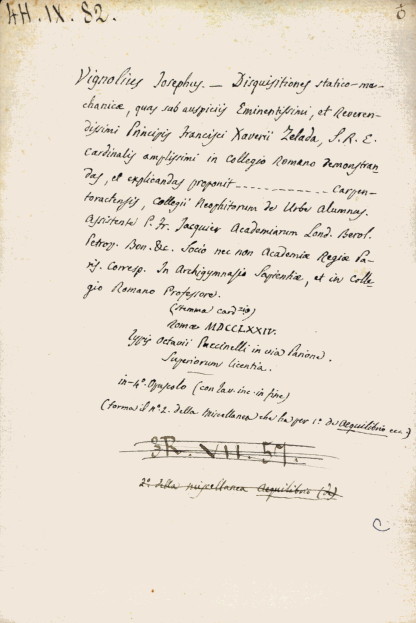 4H. IX. 82.
6
Vignolius Josephus. — Disquisitiones statico-me-
chanicæ, quas sub auspiciis Eminentissimi, et Reveren-
dissimi Principis Francisci Xaverii Zelada, S. R. E.
Cardinalis amplissimi in Collegio Romano demonstran
das, et explicandas proponit ------------ Carpen-
toractensis, Collegii Neophitorum de Urbe Alumnus.
Assistente P. Fr. Jacquier Academiarum Lond. Berol.
Petrop. Bon. &c. Socio nec non Academiæ Regiæ Pa-
ris. Corresp. In Archigymnasio Sapientiæ, et in Colle-
gio Romano Professore.
(stemma card.zio)
Romæ MDCCLXXIV.
Typis Octavii Puccinelli in via Parione.
Superiorum licentia.
in-4.° Opuscolo (con tav. inc. in fine)
(forma il n.° 2. della miscellanea che ha per 1.° de Aequilibrio ecc.)
3R. VII. 57.
2.° della miscellanea Aequilibrio (de)
C